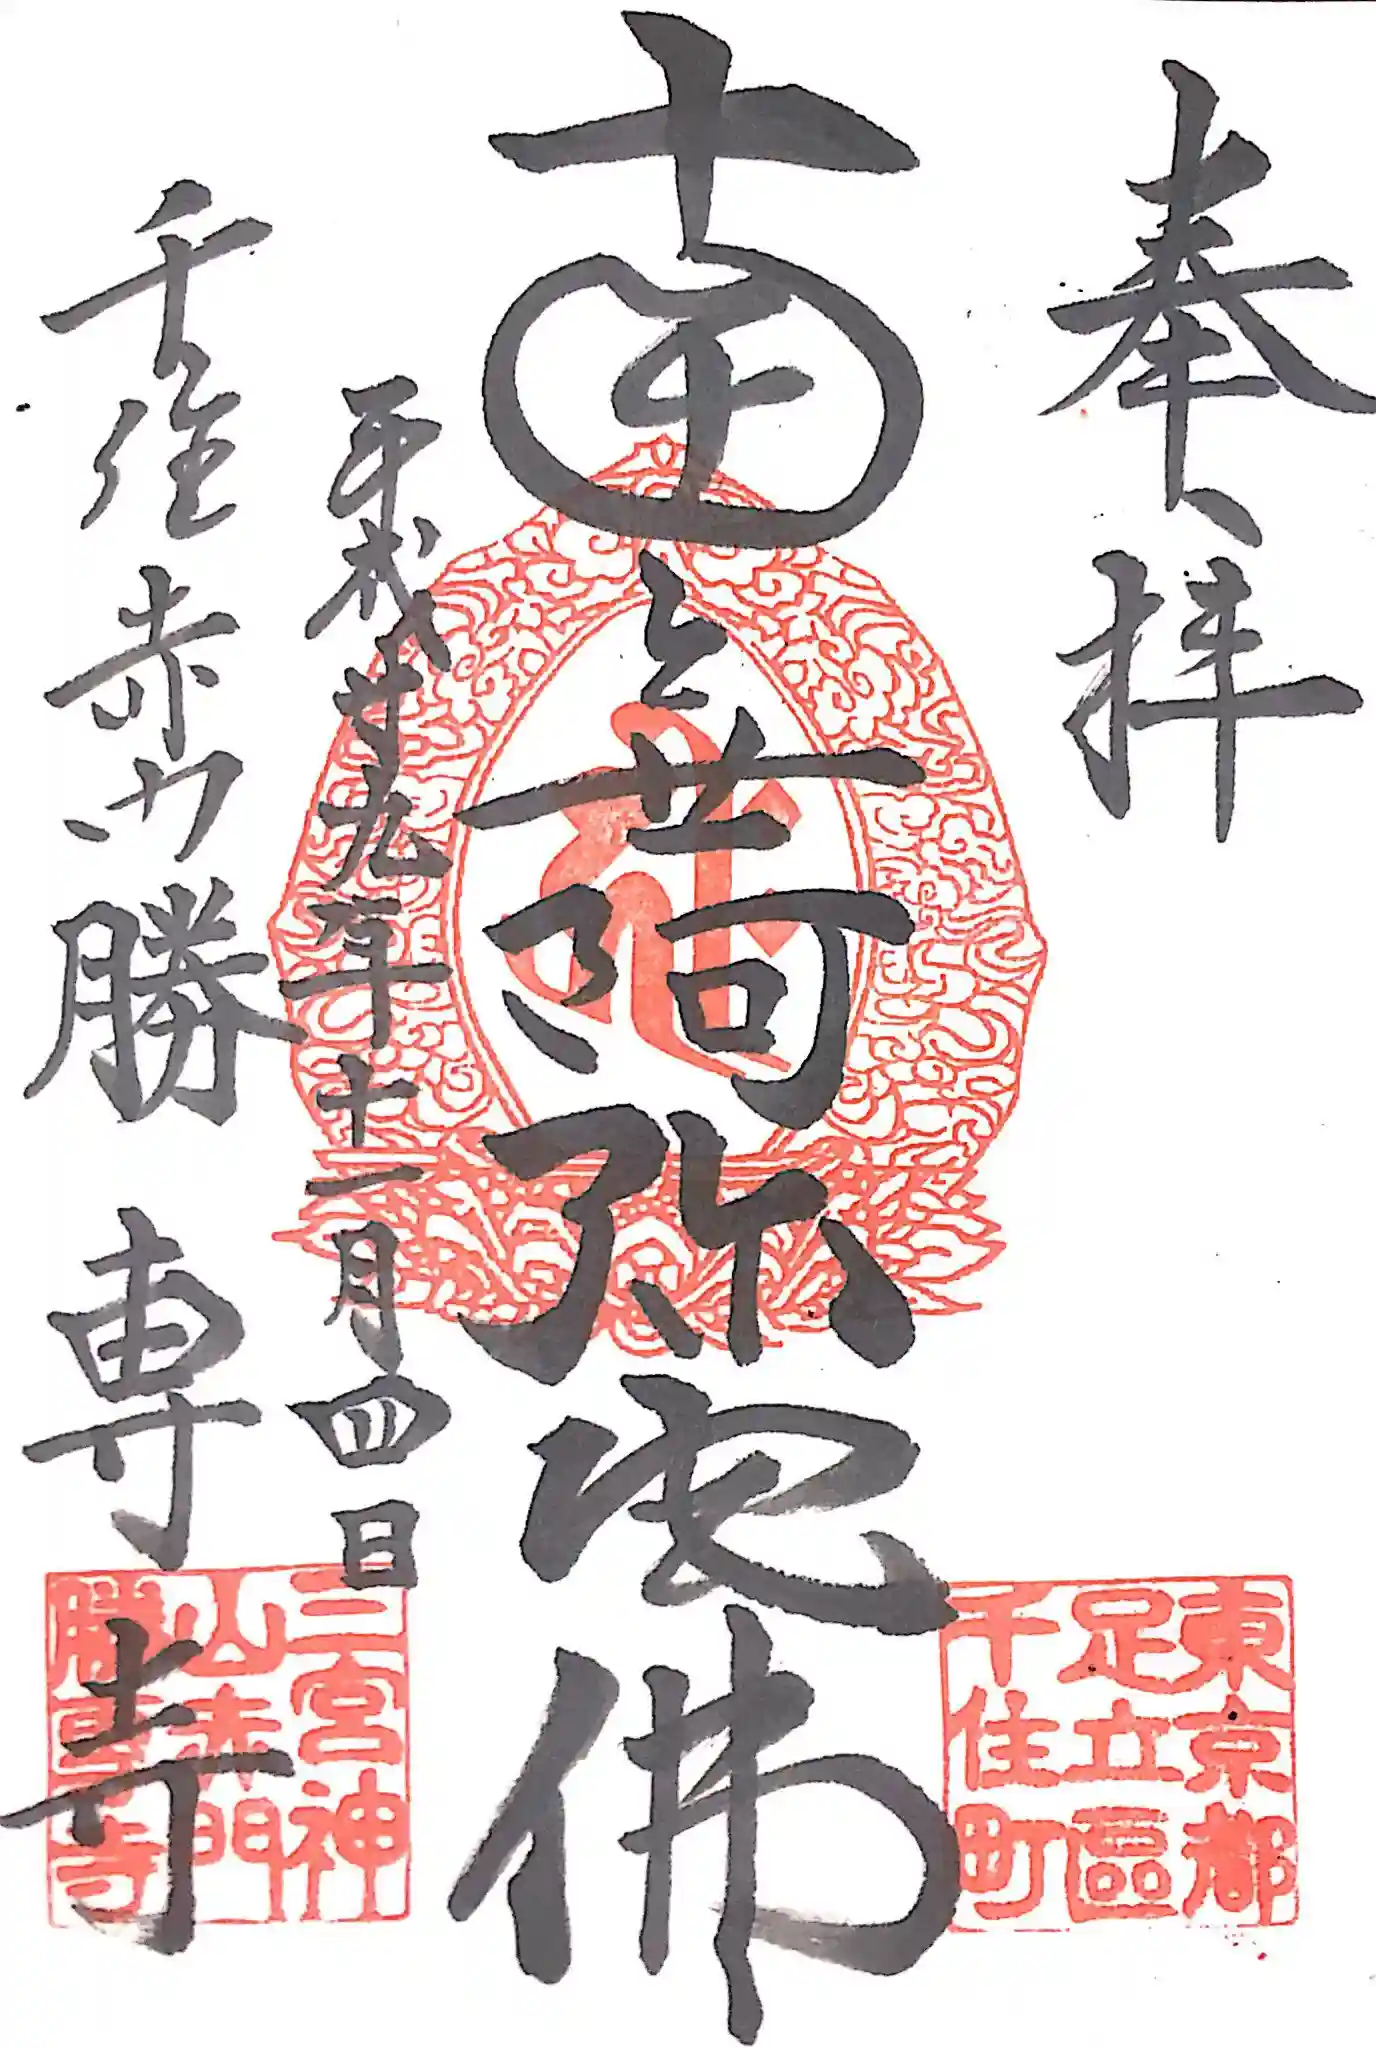 奉拝
南無阿弥陀佛
平成廿九年十一月四日
千住赤門 勝専寺
東京都
足立區
千住町
三宮神
山赤門
勝専寺